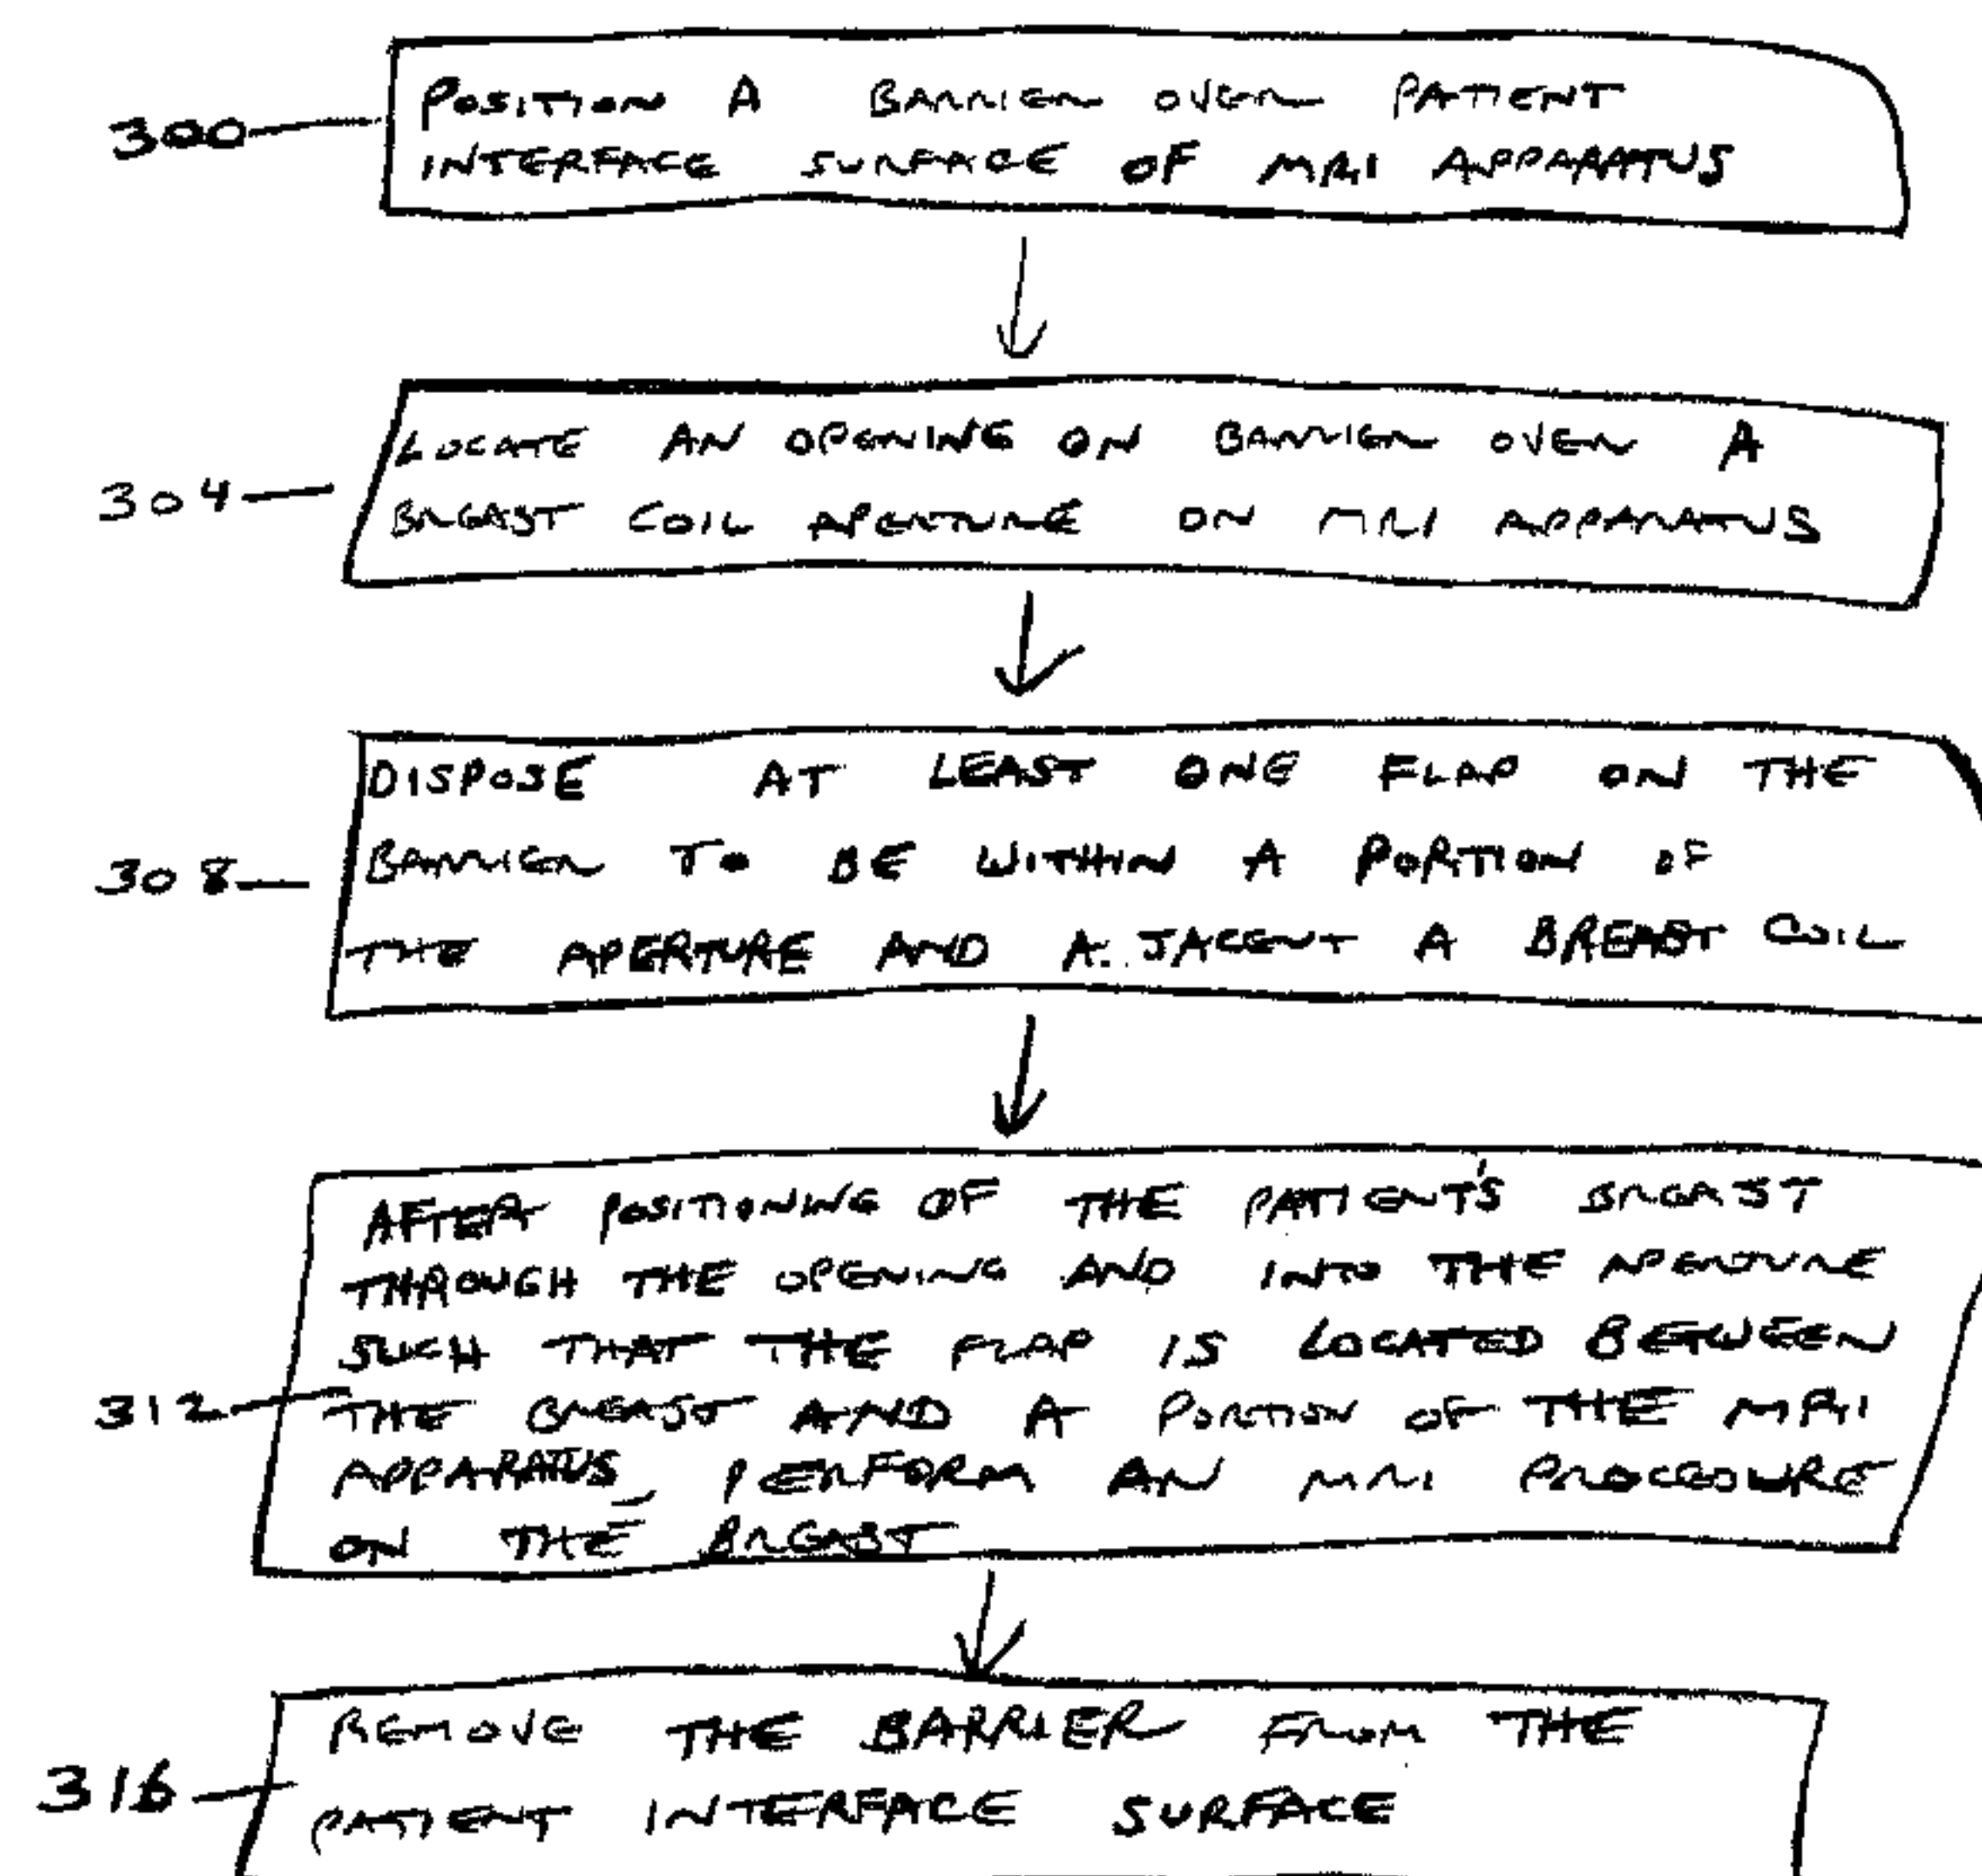 300
POSITION A BARRIER OVER PATIENT
INTERFACE SURFACE OF MRI APPARATUS
304
LOCATE AN OPENING ON BARRIER OVER A
BREAST COIL APERTURE ON MRI APPARATUS
308
DISPOSE AT LEAST ONE FLAP ON THE
BARRIER TO BE WITHIN A PORTION OF
THE APERTURE AND A..JACENT A BREAST COIL
312
AFTER POSITIONING OF THE PATIENT'S BREAST
THROUGH THE OPENING AND INTO THE APERTURE
SUCH THAT THE FLAP IS LOCATED BETWEEN
THE BREAST AND A PORTION OF THE MRI
APPARATUS, PERFORM AN MRI PROCEDURE
ON THE BREAST
316
REMOVE THE BARRIER FROM THE
PATIENT INTERFACE SURFACE